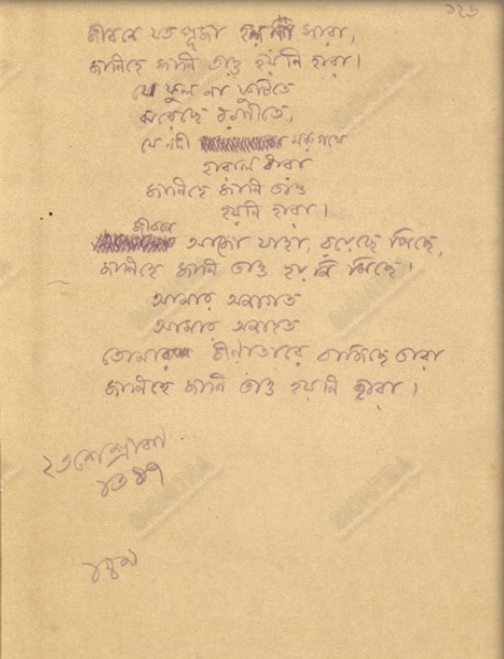 ১২৬
জীবনে যত পূজা হল না সারা,
জানিহে জানি তাও হয়নি হারা।
যে ফুল না ফুটিতে
ঝরেছে ধরণীতে,
যে নদী মরুপথে
হারাল ধারা
জানিহে জানি তাও
হয়নি হারা।
জীবনে
আজো যাহা রয়েছে পিছে,
জানিহে জানি তাও হয়নি মিছে।
আমার অনাগত
আমার অনাহত
তোমার বীণাতারে বাজিছে তারা
জানিহে জানি তাও হয়নি হারা।
২৩শে শ্রাবণ
১৩১৭